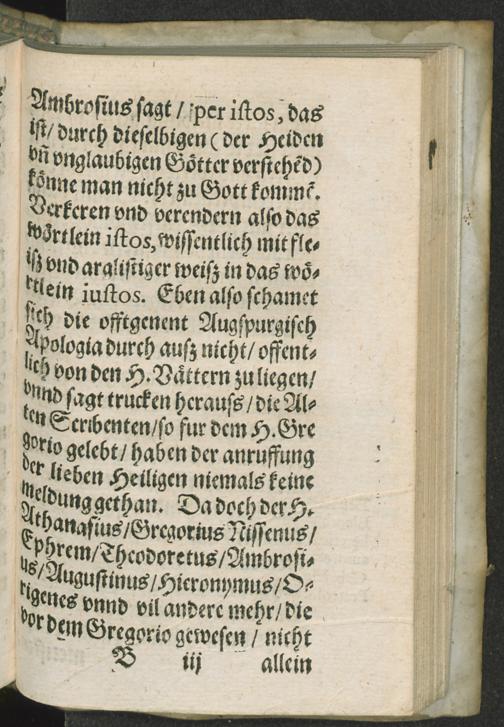 Ambrosius sagt / per istos, das
ist/ durch dieselbigen ( der Heiden
vñ vnglaubigen Götter verstehēd)
könne man nicht zu Gott kommē.
Verkeren vnd verendern also das
wörtlein istos, wissentlich mit fle-
isz vnd arglistiger weisz in das wö-
rtlein iustos. Eben also schamet
sich die offtgenent Augspurgisch
Apologia durch ausz nicht/ offent-
lich von den H. Vättern zu liegen/
vnnd sagt trucken herauss / die Al-
ten Scribenten/so fur dem H. Gre
gorio gelebt / haben der anruffung
der lieben Heiligen niemals keine
meldung gethan. Da doch der H.
Athanasius/Gregorius Nissenus/
Ephrem/Theodoretus/Ambrosi-
us/Augustinus/Hieronymus/O-
rigenes vnnd vil andere mehr/ die
vor dem Gregorio gewesen / nicht
B iij allein